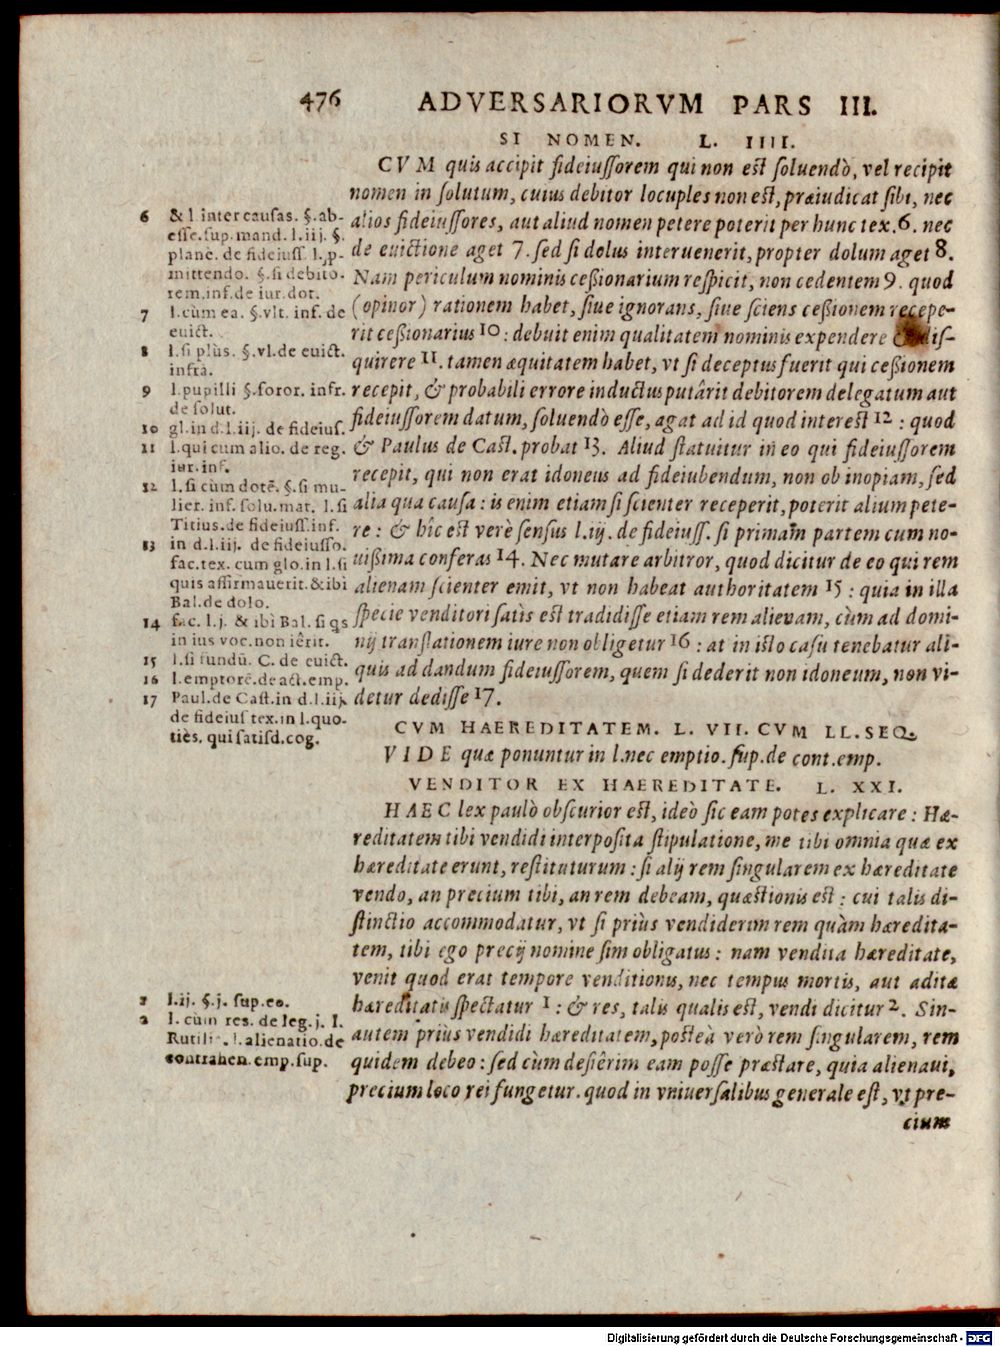 476 ADVERSARIORVM PARS III.
SI NOMEN. L. IIII.
CVM quis accipit fideiussorem qui non est soluendò, vel recipit
nomen in solutum, cuius debitor locuples non est, præiudicat sibi, nec
alios fideiussores, aut aliud nomen petere poterit per hunc tex. 6. nec
de euictione aget 7. sed si dolus interuenerit, propter dolum aget 8.
Nam periculum nominis cessionarium respicit, non cedentem 9. quod
(opinor) rationem habet, siue ignorans, siue sciens cessionem recepe-
rit cessionarius 10 : debuit enim qualitatem nominis expendere & dis-
quirere 11. tamen æquitatem habet, vt si deceptus fuerit qui cessionem
recepit, & probabili errore inductus putârit debitorem delegatum aut
fideiussorem datum, soluendò esse, agat ad id quod interest 12 : quod
& Paulus de Cast. probat 13. Aliud statuitur in eo qui fideiussorem
recepit, qui non erat idoneus ad fideiubendum, non ob inopiam, sed
alia qua causa : is enim etiam si scienter receperit, poterit alium pete-
re : & hîc est verè sensus l. iij. de fideiuss. si primam partem cum no-
uissima conferas 14. Nec mutare arbitror, quod dicitur de eo qui rem
alienam scienter emit, vt non habeat authoritatem 15 : quia in illa
specie venditori satis est tradidisse etiam rem alienam, cùm ad domi-
nij translationem iure non obligetur 16 : at in isto casu tenebatur ali-
quis ad dandum fideiussorem, quem si dederit non idoneum, non vi-
detur dedisse 17.
6 & l. inter causas. §. ab-
esse. sup. mand. l. iij. §.
planè. de fideiuss. l. p-
mittendo. §. si debito-
rem. inf. de iur. dot.
7 l. cùm ea. §. vlt. inf. de
euict.
8 l. si plùs. §. vl. de euict.
infrà.
9 l. pupilli §. soror. infr.
de solut.
10 gl. in d. l. iij. de fideius.
11 l. qui cum alio. de reg.
iur. inf.
12 l. si cùm dotē. §. si mu-
lier. inf. solu. mat. l. si
Titius. de fideiuss. inf.
13 in d. l. iij. de fideiusso.
fac. tex. cum glo. in l. si
quis affirmauerit. & ibi
Bal. de dolo.
14 fac. l. j. & ibi Bal. si qs
in ius voc. non iêrit.
15 l. si fundū. C. de euict.
16 l. emptorē. de act. emp.
17 Paul. de Cast. in d. l. iij.
de fideius tex. in l. quo-
ties. qui satisd. cog.
CVM HAEREDITATEM. L. VII. CVM LL. SEQ.
VIDE quæ ponuntur in l. nec emptio. sup. de cont. emp.
VENDITOR EX HAEREDITATE. L. XXI.
HAEC lex paulò obscurior est, ideò sic eam potes explicare : Hæ-
reditatem tibi vendidi interposita stipulatione, me tibi omnia quæ ex
hæreditate erunt, restituturum : si alij rem singularem ex hæreditate
vendo, an precium tibi, an rem debeam, quæstionis est : cui talis di-
stinctio accommodatur, vt si priùs vendiderim rem quàm hæredita-
tem, tibi ego precij nomine sim obligatus : nam vendita hæreditate,
venit quod erat tempore venditionis, nec tempus mortis, aut aditæ
hæreditatis spectatur 1 : & res, talis qualis est, vendi dicitur 2. Sin-
autem priùs vendidi hæreditatem, posteà verò rem singularem, rem
quidem debeo : sed cùm desiêrim eam posse præstare, quia alienaui,
precium loco rei fungetur. quod in vniuersalibus generale est, vt pre-
cium
1 l. ij. §. j. sup. eo.
2 l. cùm res. de leg. j. l.
Rutili . l. alienatio. de
contrahen. emp. sup.
Digitalisierung gefördert durch die Deutsche Forschungsgemeinschaft - DFG